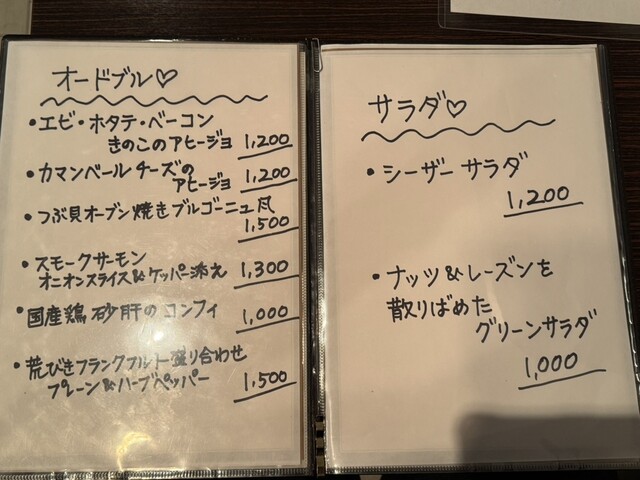 オードブル♡
・エビ・ホタテ・ベーコン
きのこのアヒージョ 1,200
・カマンベールチーズの
アヒージョ 1,200
・つぶ貝オーブン焼きブルゴーニュ風
1,500
・スモークサーモン
オニオンスライス&ケッパー添え 1,300
・国産鶏砂肝のコンフィ 1,000
・荒びきフランクフルト盛り合わせ
プレーン&ハーブペッパー 1,500
サラダ♡
・シーザーサラダ
1,200
・ナッツ&レーズンを
散りばめた
グリーンサラダ
1,000